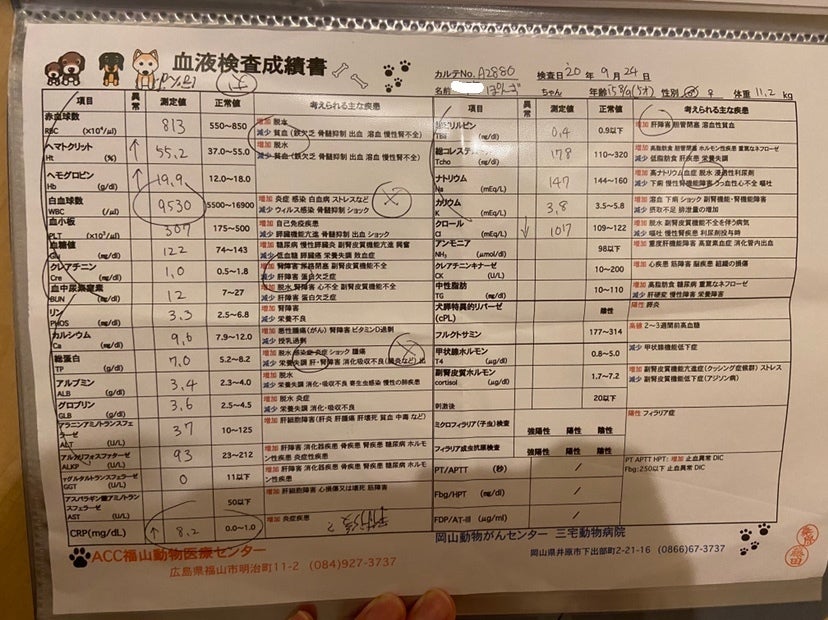 血液検査成績書
カルテNo. A2880 検査日 '20 年 9 月 24 日
名前 ちゃん 年齢 性別 ♂ ♀ 体重 11.2 kg
項目 異常 測定値 正常値 考えられる主な疾患
赤血球数 RBC (×10⁴/μl) 813 550~850 増加 脱水
減少 貧血(鉄欠乏 骨髄抑制 出血 溶血 慢性腎不全)
ヘマトクリット Ht (%) ↑ 55.2 37.0~55.0 増加 脱水
減少 貧血(鉄欠乏 骨髄抑制 出血 溶血 慢性腎不全)
ヘモグロビン Hb (g/dl) ↑ 19.9 12.0~18.0
白血球数 WBC (/μl) 9530 5500~16900 増加 炎症 感染 白血病 ストレスなど
減少 ウィルス感染 骨髄抑制 ショック
血小板 PLT (×10³/μl) 307 175~500 増加 自己免疫疾患
減少 脾臓機能亢進 骨髄抑制 出血 ショック
血糖値 Glu (mg/dl) 122 74~143 増加 糖尿病 慢性膵臓炎 副腎皮質機能亢進 興奮
減少 低血糖 膵臓癌 栄養不良 敗血症
クレアチニン Cre (mg/dl) 1.0 0.5~1.8
減少 肝障害 蛋白欠乏症
血中尿素窒素 BUN (mg/dl) 12 7~27 増加 脱水 腎障害 心不全 副腎皮質機能不全
減少 肝障害 蛋白欠乏
リン PHOS (mg/dl) 3.3 2.5~6.8 増加 腎障害
減少 栄養不良
カルシウム Ca (mg/dl) 9.6 7.9~12.0 増加 悪性腫瘍(がん) 腎障害 ビタミンD過剰
減少 授乳過剰
総蛋白 TP (g/dl) 7.0 5.2~8.2 増加 脱水 感染症 炎症 ショック 腫瘍
アルブミン ALB (g/dl) 3.4 2.3~4.0 増加 脱水
減少 栄養失調 消化・吸収不良 寄生虫感染 慢性の肺疾患
グロブリン GLB (g/dl) 3.6 2.5~4.5 増加 脱水 炎症
減少 栄養失調 消化・吸収不良
アラニンアミノトランスフェラーゼ ALT (U/L) 37 10~125 増加 肝細胞障害(肝炎 肝腫瘍 肝壊死 貧血 中毒 など)
アルカリフォスファターゼ ALKP (U/L) 93 23~212 増加 肝障害 消化器疾患 骨疾患 腎疾患 糖尿病 ホルモン性疾患 炎症性疾患
γグルタルトランスフェラーゼ GGT (U/L) 0 11以下 増加 肝障害 消化器疾患 骨疾患 腎疾患 糖尿病 ホルモン性疾患
アスパラギン酸アミノトランスフェラーゼ AST (U/L) 50以下 増加 肝細胞障害 心損傷又は壊死 筋障害
CRP(mg/dL) ↑ 8.2 0.0~1.0 増加 炎症疾患
項目 異常 測定値 正常値 考えられる主な疾患
総ビリルビン TBil (mg/dl) 0.4 0.9以下 増加 肝障害 胆管閉塞 溶血性貧血
総コレステロール Tcho (mg/dl) 178 110~320 増加 高脂肪食 胆管閉塞 ホルモン性疾患 重篤なネフローゼ
減少 低脂肪食 肝疾患 栄養失調
ナトリウム Na (mEq/L) 147 144~160 増加 高ナトリウム血症 脱水 浸透性利尿剤
減少 下痢 慢性腎機能障害 うっ血性心不全 嘔吐
カリウム K (mEq/L) 3.8 3.5~5.8 増加 溶血 下痢 ショック 副腎機能・腎機能障害
減少 摂取不足 排泄量の増加
クロール Cl (mEq/L) ↓ 107 109~122 増加 脱水 副腎皮質機能不全を伴う病気
減少 嘔吐 慢性腎胃炎 利尿剤投与時
アンモニア NH₃ (μmol/dl) 98以下 増加 重度肝機能障害 高窒素血症 消化管内出血
クレアチニンキナーゼ CK (U/L) 10~200 増加 心疾患 筋障害 脳疾患 組織の損傷
中性脂肪 TG (mg/dl) 10~110 増加 高脂肪食 糖尿病 重篤なネフローゼ
減少 肝硬変 慢性障害 栄養障害
犬膵特異的リパーゼ (cPL) 陰性 陽性 膵炎
フルクトサミン 177~314 高値 2~3週間前高血糖
甲状腺ホルモン T4 (μg/dl) 0.8~5.0 減少 甲状腺機能低下症
副腎皮質ホルモン cortisol (μg/dl) 1.7~7.2 増加 副腎皮質機能亢進症(クッシング症候群) ストレス
減少 副腎皮質機能低下症(アジソン病)
刺激後 20以下
ミクロフィラリア(子虫)検査 強陽性 陽性 陰性 陽性 フィラリア症
フィラリア成虫抗原検査 強陽性 陽性 陰性
PT/APTT (秒) / PT APTT HPT: 増加 止血異常 DIC
Fbg:250以下 止血異常 DIC
Fbg/HPT (mg/dl) /
FDP/AT-Ⅲ (μg/ml) /
ACC福山動物医療センター
広島県福山市明治町11-2 (084)927-3737
岡山動物がんセンター 三宅動物病院
岡山県井原市下出部町2-21-16 (0866)67-3737